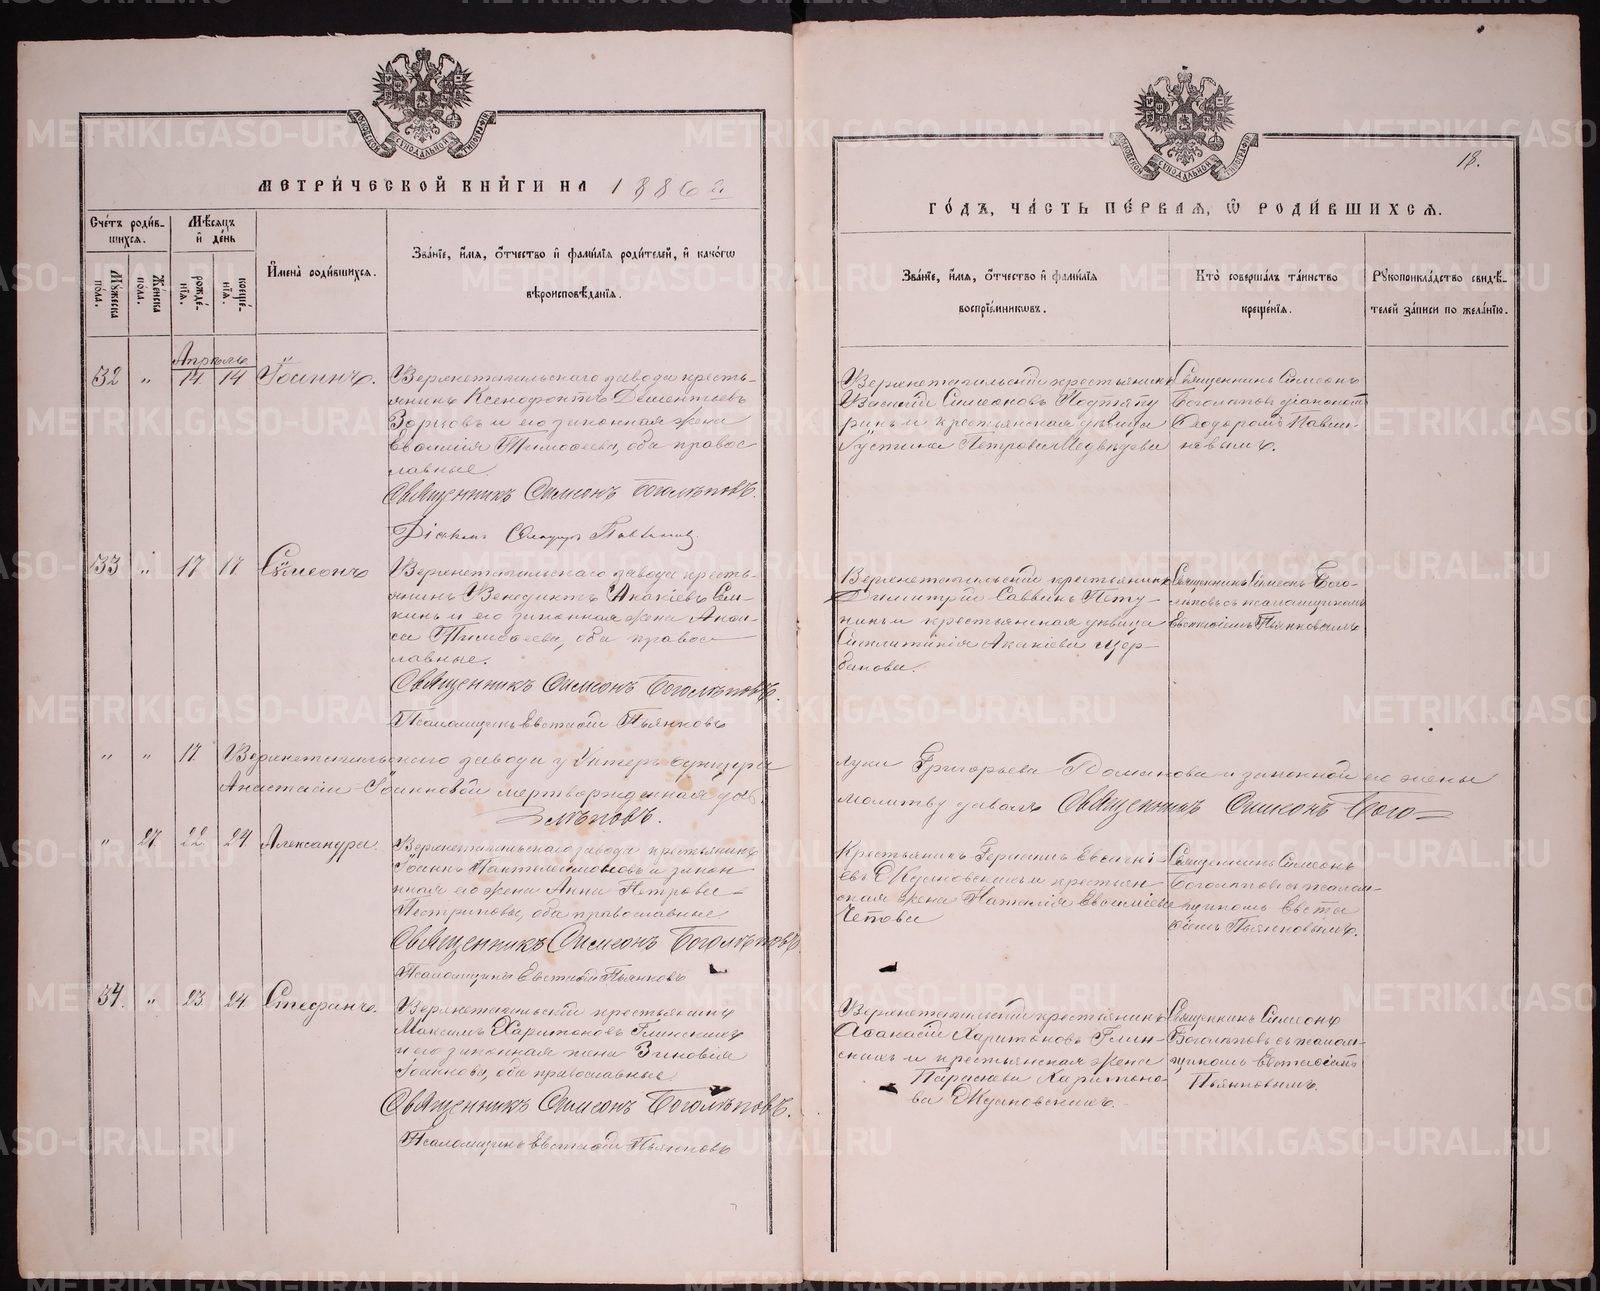 МЕТРИ́ЧЕСКОЙ КНИ́ГИ НА 1886 й
Сче́тъ роди́в-
шихся.
Мѣсяцъ
и де́нь
Му́жеска
пола.
Же́нска
пола.
рожде́-
нїя.
креще́-
нїя.
Имена̀ роди́вшихся.
Зва́нїе, и́мя, о́тчество и фами́лїя роди́телей, и како́гѡ
вѣроисповѣ́данїя.
Апрѣль
32 „ 14 14 Іоаннъ.
Верхнетагильскаго завода кресть-
янинъ Ксенофонтъ Дементьевъ
и его законная жена
Тимофеева, оба правос-
лавные.
Священникъ Симеонъ Боголѣповъ.
Діаконъ Павинов
33 „ 17 17 Симеонъ
Верхнетагильскаго завода кресть-
янинъ Венедиктъ Акакіевъ
и его законная жена
Тимофеева, оба правос-
лавные.
Священникъ Симеонъ Боголѣповъ.
Псаломщикъ Евстафій Пьянковъ
„ „ 17 Верхнетагильскаго завода у Унтеръ офицера
Анастасіи Іоанновой мертворожденная
лѣповъ.
„ 27 22 24 Александра.
Верхнетагильскаго завода крестьянинъ
Іоаннъ Пантелеимоновъ и закон-
ная его жена Анна Петрова
оба православные
Священникъ Симеонъ Боголѣповъ.
Псаломщикъ Евстафій Пьянковъ
34. „ 23 24 Стефанъ.
Верхнетагильскій крестьянинъ
Максимъ Харитоновъ Глинскихъ
и его законная жена Зиновія
Іоаннова, оба православные
Священникъ Симеонъ Боголѣповъ.
Псаломщикъ Евстафій Пьянковъ
18.
ГО́ДЪ, ЧА́СТЬ ПЕ́РВАЯ, Ѡ РОДИ́ВШИХСЯ.
Зва́нїе, и́мя, о́тчество и фами́лїя
воспрїе́мниковъ.
Кто̀ соверша́лъ та́инство
креще́нїя.
Рукоприкла́дство свидѣ́-
телей за́писи по жела́нїю.
Верхнетагильскій крестьянинъ
Василій Симеоновъ
и крестьянская дѣвица
Устинья Петрова Медвѣдева
Священникъ Симеонъ
Боголѣповъ съ діакономъ
Ѳеодоромъ Павин-
новымъ.
Верхнетагильскій крестьянинъ
Димитрій Саввинъ Пету-
и крестьянская дѣвица
Акакіева Щер-
бакова.
Священникъ Симеонъ Бого-
лѣповъ съ псаломщикомъ
Евстафіемъ Пьянковымъ
Луки Григорьева Романова и законной его жены
молитву давалъ Священникъ Симеонъ Бого-
Крестьянинъ Герасимъ
евъ и крестьян-
ская жена Наталія Евфиміева
Священникъ Симеонъ
Боголѣповъ съ псалом-
щикомъ Евста-
фіемъ Пьянковымъ.
Верхнетагильскій крестьянинъ
Афанасій Харитоновъ Глин-
скихъ и крестьянская жена
Параскева Харитоно-
ва
Священникъ Симеонъ
Боголѣповъ съ псалом-
щикомъ Евстафіемъ
Пьянковымъ.
METRIKI.GASO-URAL.RU